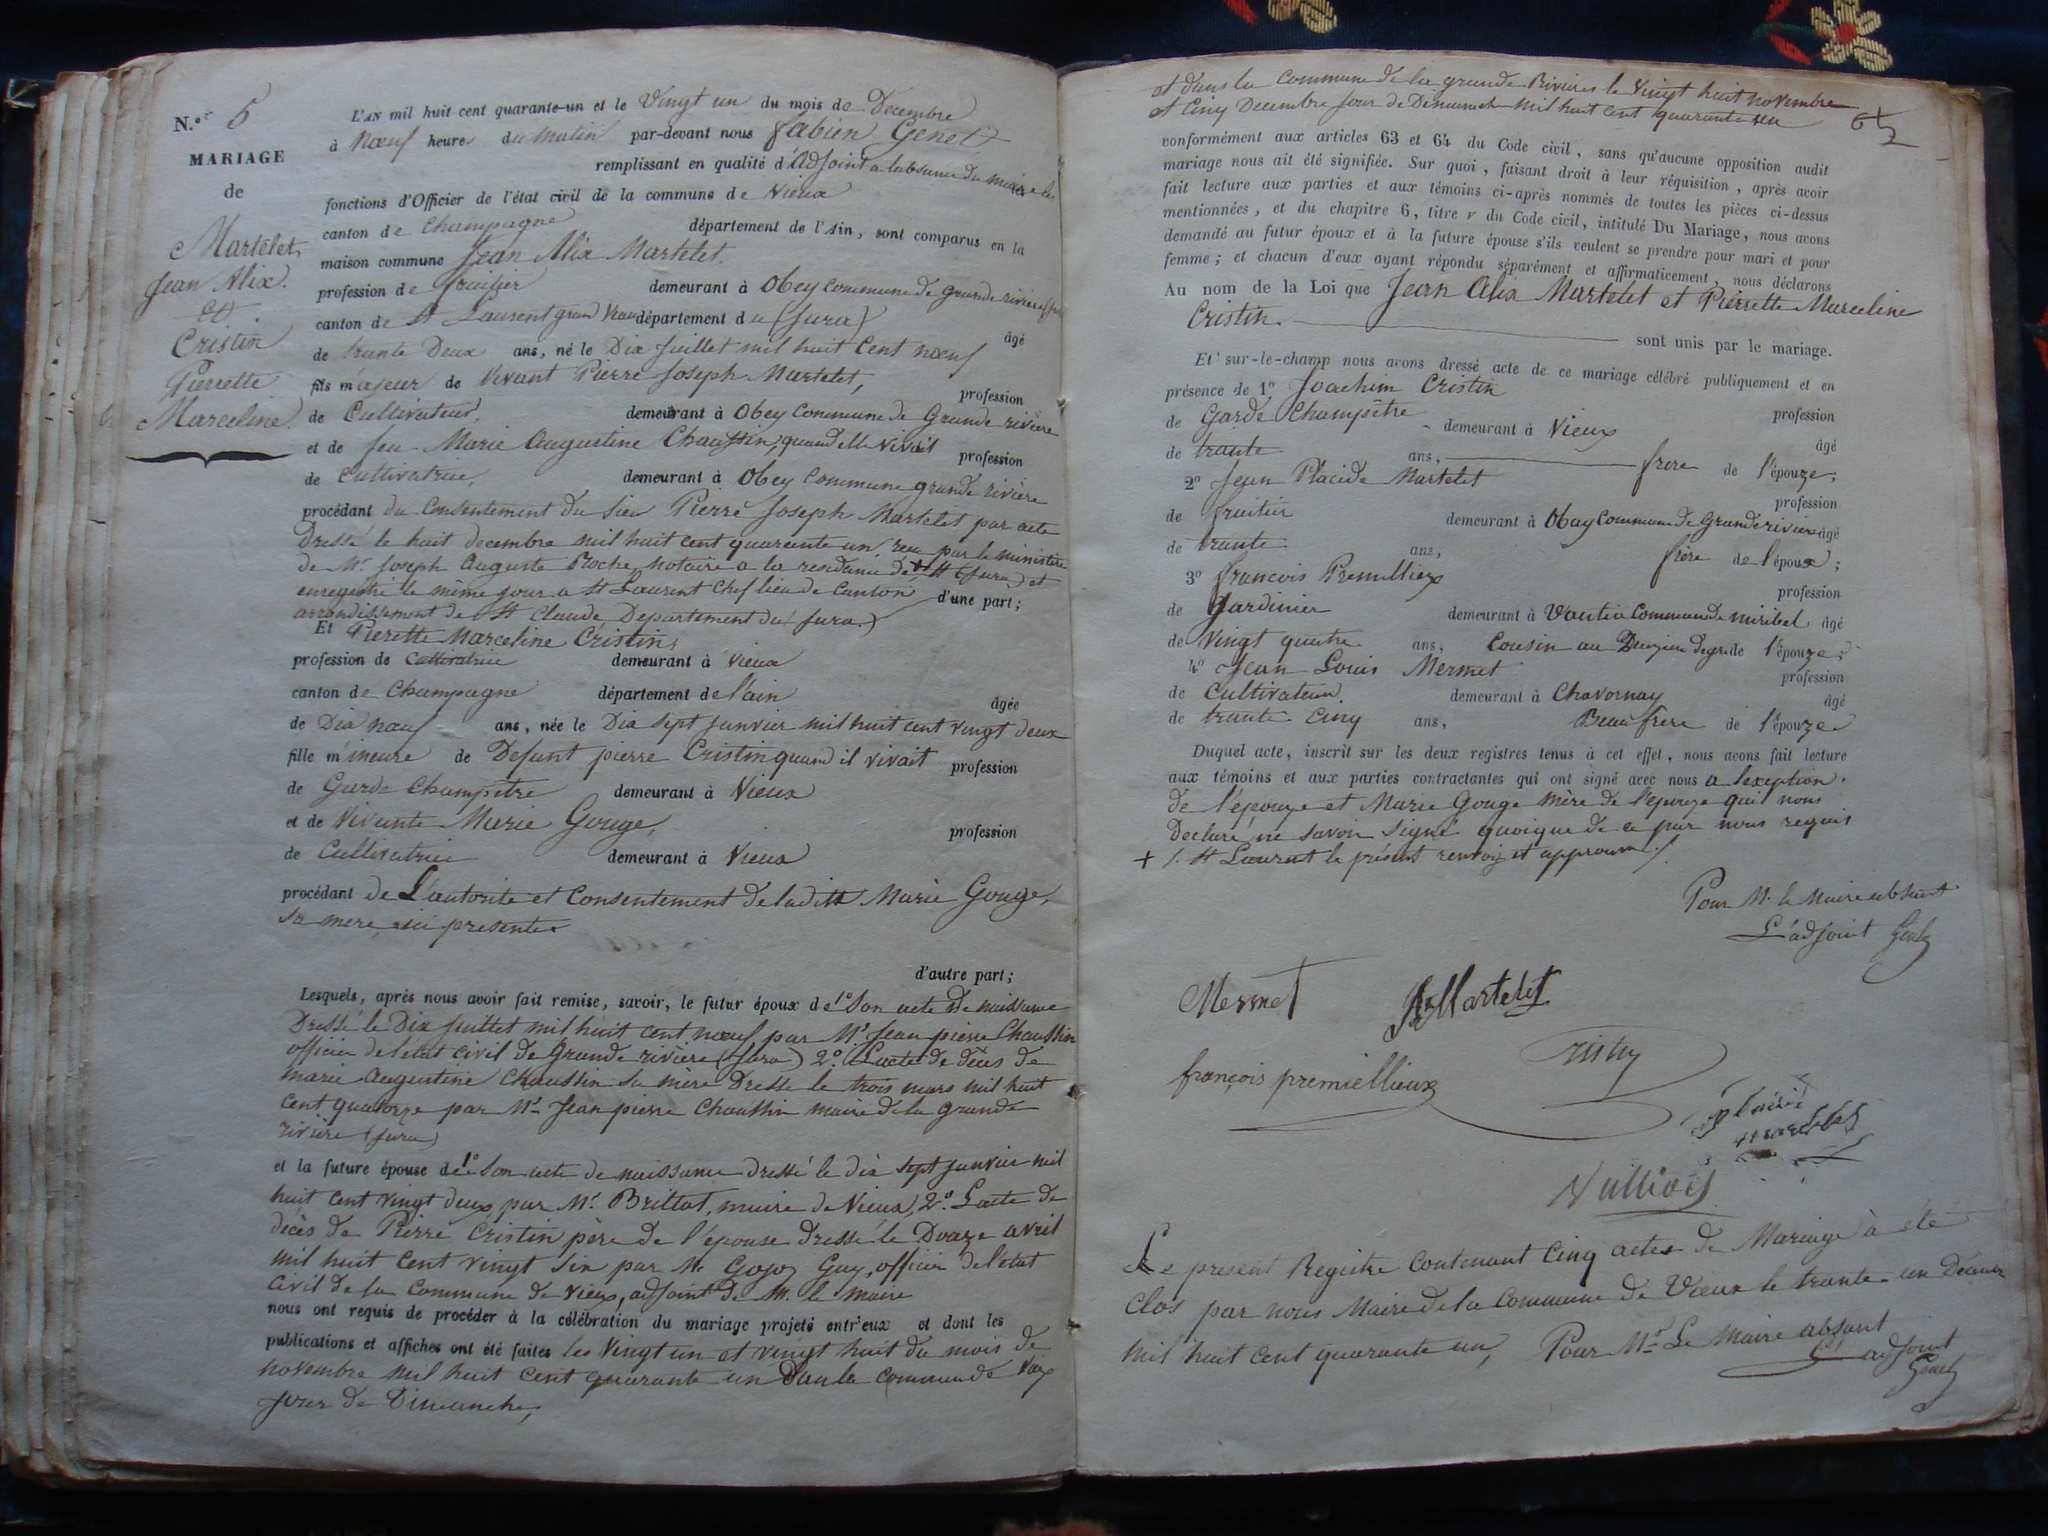 N.º 5
MARIAGE
de
Martelet
Jean Alix.
et
Cristin
Pierrette
Marceline.
L'AN mil huit cent quarante-un et le Vingt un du mois de Decembre
à Nœuf heures du matin par-devant nous fabien Genet
remplissant en qualité d'Adjoint a labsance du maire les
fonctions d'Officier de l'état civil de la commune de Vieux
canton de Champagne département de l'Ain, sont comparus en la
maison commune Jean Alix Martelet.
profession de fruitier demeurant à Obey commune de grande rivière
canton de St Laurent département du (Jura) âgé
de trante Deux ans, né le Dix Juillet mil huit Cent nœuf
fils majeur de Vivant Pierre Joseph Martelet, profession
de Cultivateur, demeurant à Obey Commune de Grande rivière
et de feu Marie Augustine Chaussin, quand elle vivait profession
de Cultivatrice, demeurant à Obey Commune grande rivière
procédant du Consentement du Sieur Pierre Joseph Martelet par acte
Dressé le huit decembre mil huit cent quarante un, recu par le ministère
de Mr. Joseph Auguste Roche, Notaire a la residance de + St (Jura) et
enregistré le même jour a St Laurent Chef lieu de Canton d'une part;
arrondissement de St Claude Departement du (Jura.)
Et Pierette Marceline Cristin,
profession de Cultivatrice demeurant à Vieux
canton de Champagne département de l'ain âgée
de Dix nœuf ans, née le Dix sept Janvier mil huit cent vingt deux
fille mineure de Defunt pierre Cristin quand il vivait profession
de Garde Champêtre demeurant à Vieux
et de Vivante Marie Gouge, profession
de Cultivatrice demeurant à Vieux
procédant de L'autorité et Consentement de laditte Marie Gouge,
sa mere ici presente
d'autre part;
Lesquels, après nous avoir fait remise, savoir, le futur époux de 1º Son acte de naissance
Dressé le Dix Juillet mil huit cent nœuf par Mr. Jean pierre Chaussin
officier de l'état civil de Grande rivière (Jura) 2º. L'acte de décès de
marie Augustine Chaussin sa mère Dressé le trois mars mil huit
cent quatorze par Mr. Jean pierre Chaussin maire de la grande
rivière (Jura)
et la future épouse de 1º Son acte de naissance dressé le dix sept Janvier mil
huit cent vingt deux par Mr. Brillat, maire de Vieux, 2º. L'acte de
décès de Pierre Cristin père de l'épouse dressé le Douze avril
mil huit cent vingt six par Mr. Gojoz Guy, officier de l'état
civil de la Commune de Vieux, adjoint de M. le Maire
nous ont requis de procéder à la célébration du mariage projeté entr'eux et dont les
publications et affiches ont été faites les Vingt un et vingt huit du mois de
novembre mil huit cent quarante un Dans la commune de
Jour de Dimanche,
et dans la Commune de la grande Rivières le Vingt huit novembre
et Cinq Decembre Jour de Dimanche mil huit cent quarante un
conformément aux articles 63 et 64 du Code civil, sans qu'aucune opposition audit
mariage nous ait été signifiée. Sur quoi, faisant droit à leur réquisition, après avoir
fait lecture aux parties et aux témoins ci-après nommés de toutes les pièces ci-dessus
mentionnées, et du chapitre 6, titre v du Code cicil, intitulé Du Mariage, nous avons
demandé au futur époux et à la future épouse s'ils veulent se prendre pour mari et pour
femme; et chacun d'eux ayant répondu séparément et affirmaticement, nous déclarons
Au nom de la Loi que Jean Alix Martelet et Pierrette Marceline
Cristin. sont unis par le mariage.
Et sur-le-champ nous avons dressé acte de ce mariage célébré publiquement et en
présence de 1º Joachim Cristin profession
de Garde Champêtre demeurant à Vieux âgé
de trante ans, frere de l'épouze;
2º Jean Placide Martelet profession
de fruitier demeurant à Obay Commune de Grande rivière âgé
de trante ans, frère de l'époux;
3º francois Premillieux profession
de Jardinier demeurant à Commune de miribel âgé
de Vingt quatre ans, Cousin au de l'épouze;
4º Jean Louis Mermet profession
de Cultivateur demeurant à Chavornay âgé
de trante cinq ans, Beau frere de l'épouze
Duquel acte, inscrit sur les deux registres tenus à cet effet, nous avons fait lecture
aux témoins et aux parties contractantes qui ont signé avec nous a l'exeption
de l'épouze et Marie Gouge Mère de l'épouze qui nous
Declaré ne savoir Signé quoique de ce par nous requis
+ /. St Laurent le présent renvoi et approuvé /.
Pour M. le Maire absent
L'adjoint Genet
Mermet
Martelet
Cristin
françois premiellieux
placide
martelet
Le present Registre Contenant Cinq actes de Mariage à été
Clos par nous Maire de la Commune de Vieux le trante un Décembre
mil huit cent quarante un, Pour Mr. Le Maire absant
L' adjoint
Genet